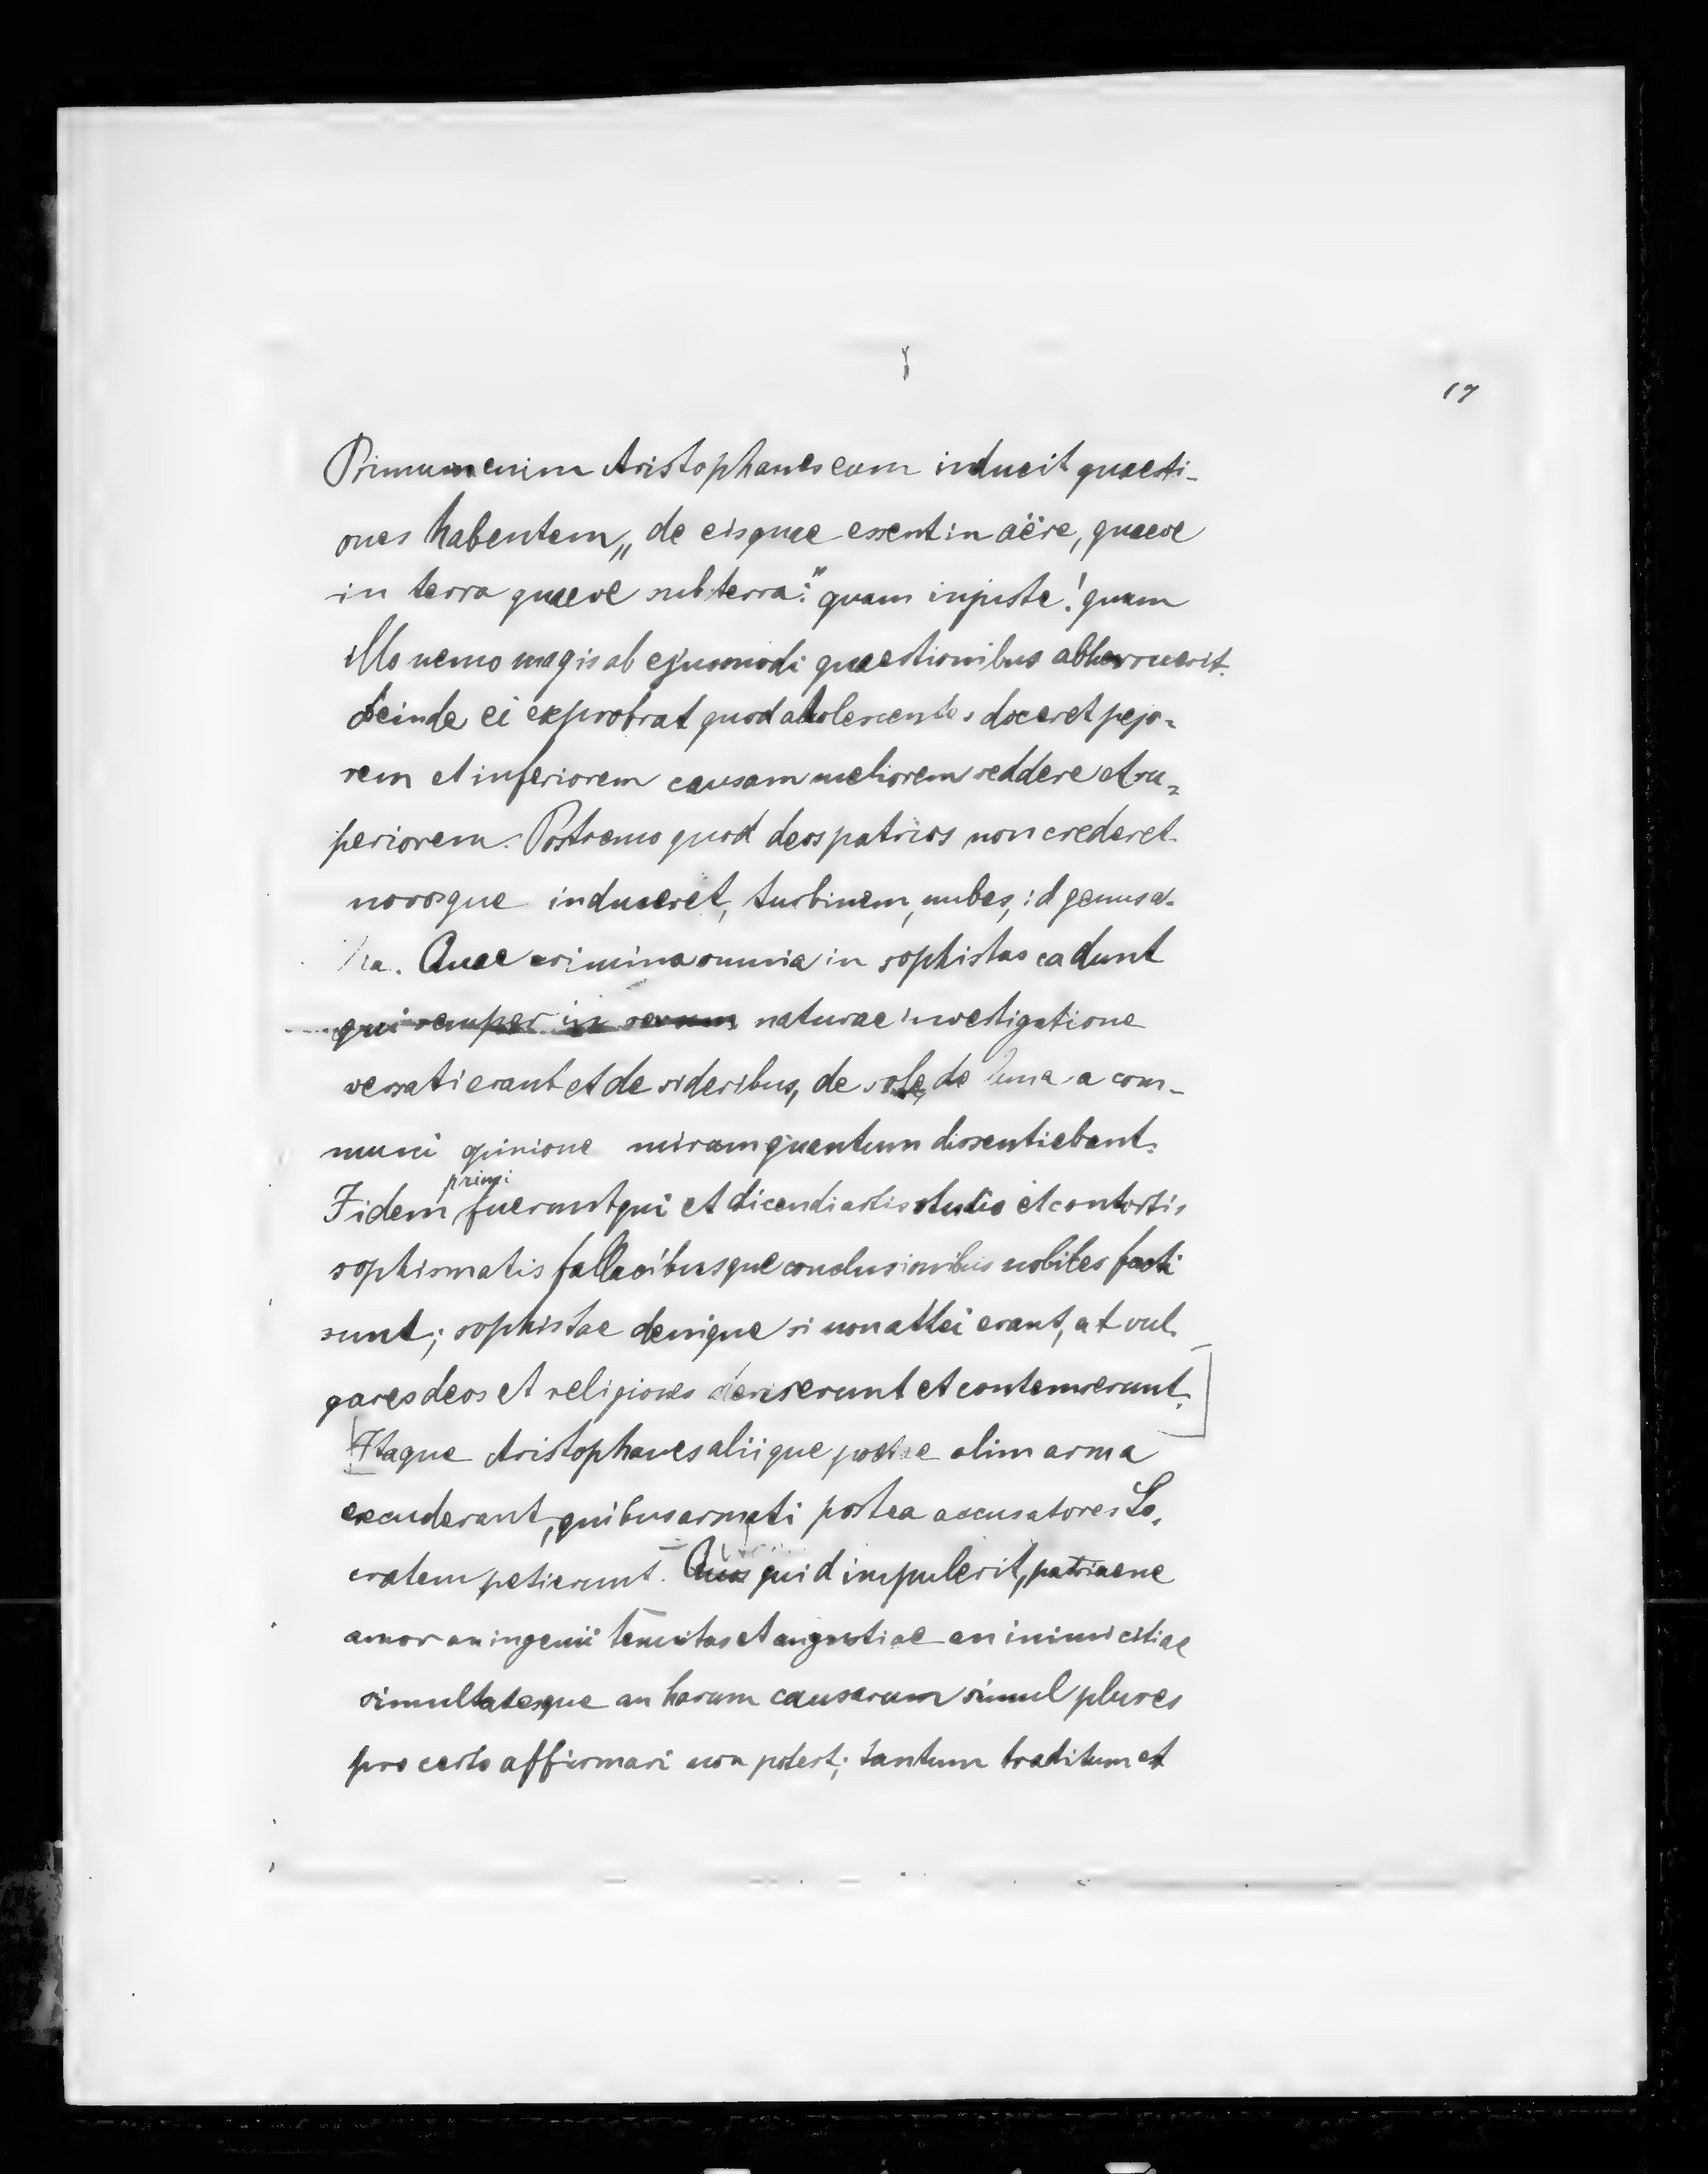 17
Primum enim Aristophanes eum inducit quaesti-
ones habentem „de eis quae essent in aëre, quaeve
in terra quaeve sub terra:" quam injuste! quam
illo nemo magis ab ejusmodi quaestionibus abhorruerit.
Deinde ei exprobrat quod adolescentes doceret pejo-
rem et inferiorem causam meliorem reddere et su-
periorem. Postremo quod deos patrios non crederet
novosque induceret, turbinem, nubes, id genus a-
lia. Quae crimina omnia in sophistas cadunt
qui semper in rerum naturae investigatione
versati erant et de sideribus, de sole, de luna a com-
muni opinione mirum quantum dissentiebant.
primi
Iidem fuerunt qui et dicendi artis studio et contortis
sophismatis fallacibusque conclusionibus nobiles facti
sunt; sophistae denique si non athei erant, at vul-
gares deos et religiones deriserunt et contemserunt.
Itaque Aristophanes aliique poetae olim arma
excuderant, quibus armati postea accusatores So-
cratem petierunt. Quos quid impulerit, patriaene
amor an ingenii tenuitas et angustiae an inimicitiae
simultatesque an harum causarum simul plures
pro certo affirmari non potest; tantum traditum est